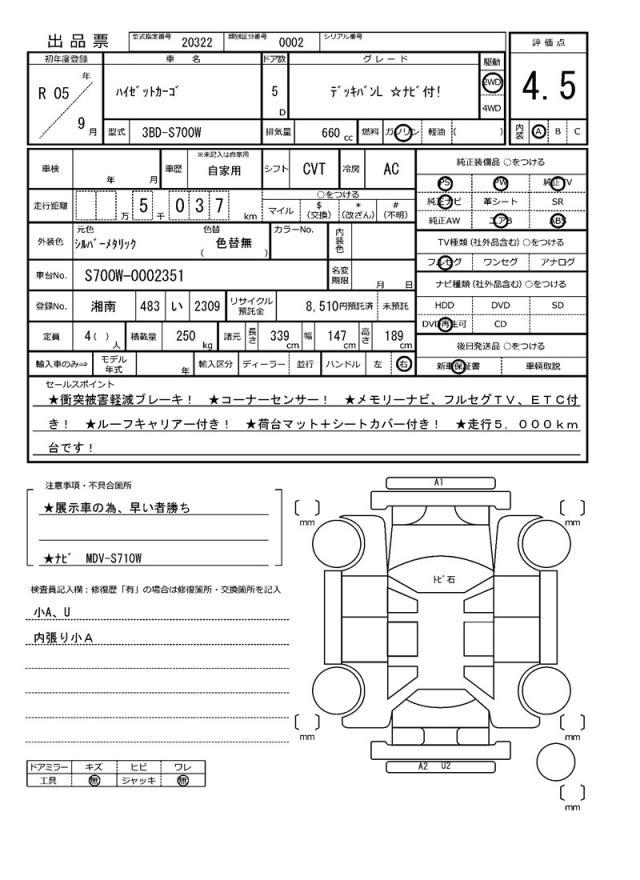 出品票 型式指定番号 20322 類別区分番号 0002 シリアル番号
評価点
4.5
内装 A B C
初年度登録 車名 ドア数 グレード 駆動
R 05 年 9 月 ﾊｲｾﾞｯﾄｶｰｺﾞ 5 D ﾃﾞｯｷﾊﾞﾝL ☆ﾅﾋﾞ付! 2WD 4WD
型式 3BD-S700W 排気量 660 cc 燃料 ガソリン 軽油 ( )
車検 年 月 車歴 ※未記入は自家用 自家用 シフト CVT 冷房 AC
走行距離 万 5 千 0 3 7 km
○をつける
マイル $ (交換) * (改ざん) # (不明)
外装色 元色 ｼﾙﾊﾞｰﾒﾀﾘｯｸ 色替 ( 色替無 ) カラーNo. 内装色
車台No. S700W-0002351 名変期限 月 日
登録No. 湘南 483 い 2309 リサイクル預託金 8,510円預託済 未預託
定員 4( ) 人 積載量 250 kg 諸元 長さ 339 cm 幅 147 cm 高さ 189 cm
輸入車のみ⇒ モデル年式 年 輸入区分 ディーラー 並行 ハンドル 左 右
純正装備品 ○をつける
PS PW 純正TV
純正ナビ 革シート SR
純正AW エアB ABS
TV種類 (社外品含む) ○をつける
フルセグ ワンセグ アナログ
ナビ種類 (社外品含む) ○をつける
HDD DVD SD
DVD再生可 CD
後日発送品 ○をつける
新車保証書 車輌取説
セールスポイント
★衝突被害軽減ブレーキ! ★コーナーセンサー! ★メモリーナビ、フルセグTV、ETC付
き! ★ルーフキャリアー付き! ★荷台マット+シートカバー付き! ★走行5.000km
台です!
注意事項・不具合箇所
★展示車の為、早い者勝ち
★ﾅﾋﾞ MDV-S710W
検査員記入欄：修復歴「有」の場合は修復箇所・交換箇所を記入
小A、U
内張り小A
ドアミラー キズ ヒビ ワレ
工具 無 ジャッキ 無
A1
[ ] mm
[ ] mm
ﾄﾋﾞ石
[ ] mm
[ ] mm
A2 U2
[ ] mm